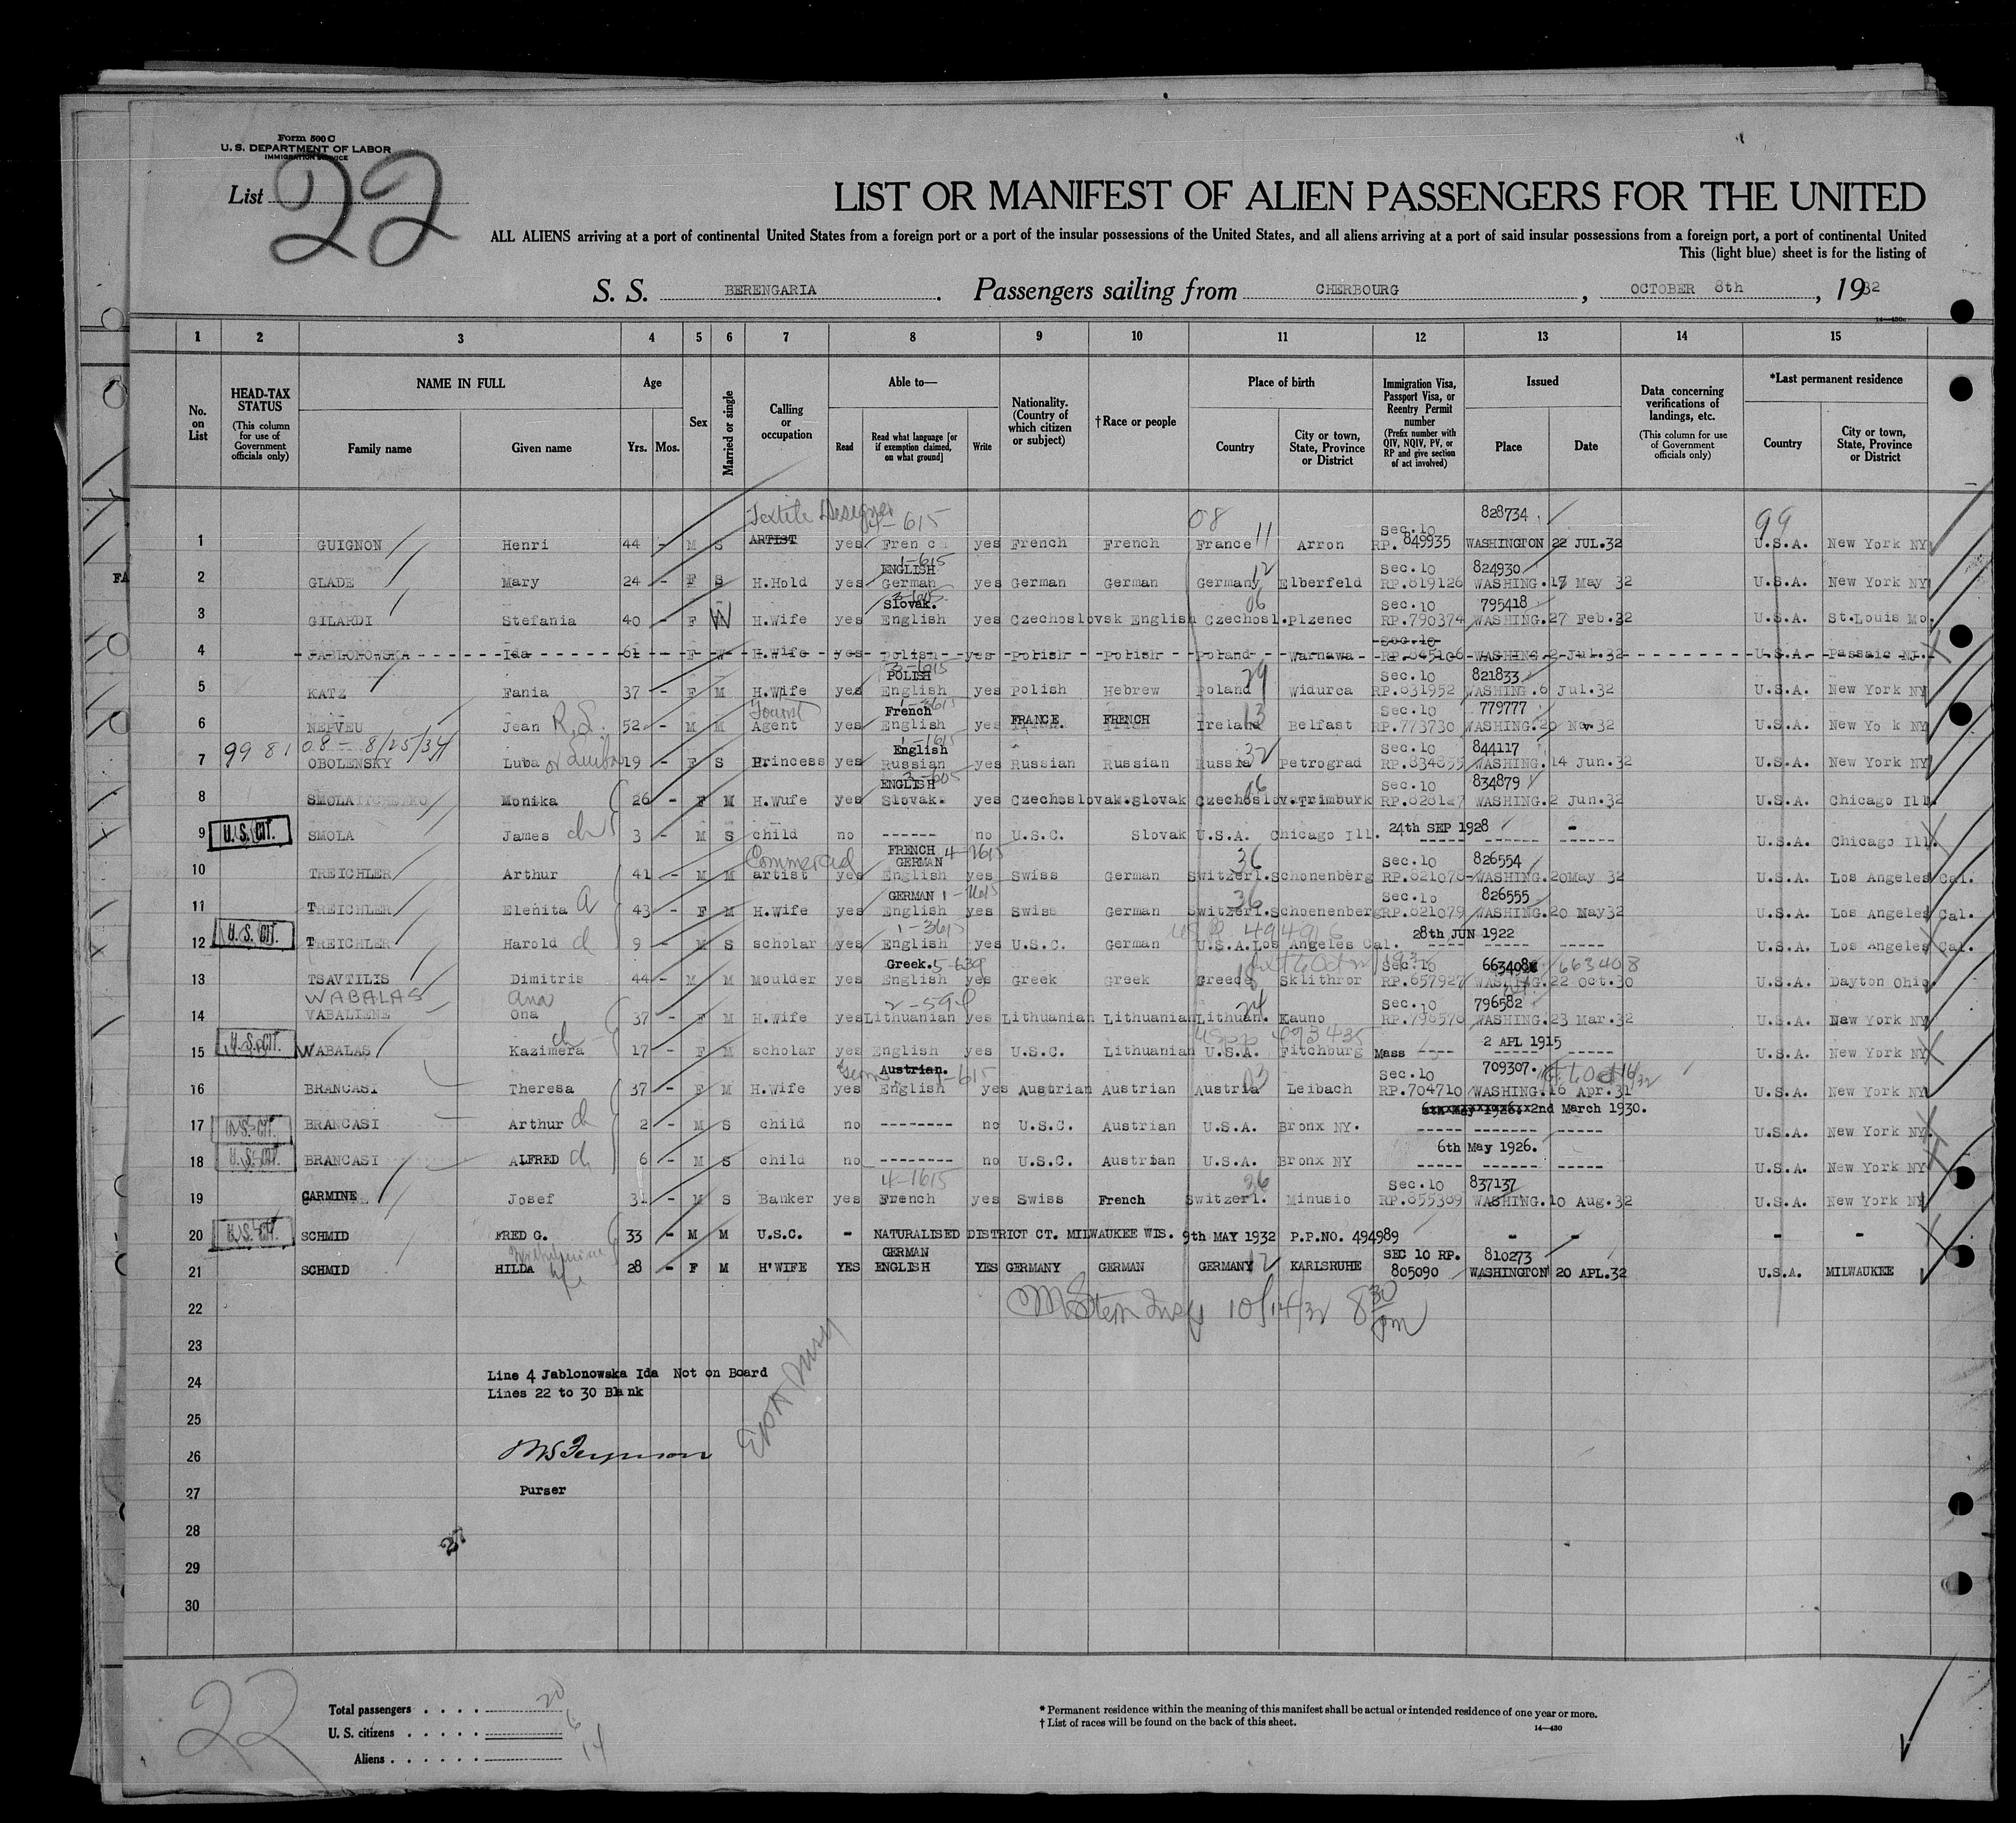 Form 500 C
U. S. DEPARTMENT OF LABOR
IMMIGRATION SERVICE
List 22
LIST OR MANIFEST OF ALIEN PASSENGERS FOR THE UNITED
ALL ALIENS arriving at a port of continental United States from a foreign port or a port of the insular possessions of the United States, and all aliens arriving at a port of said insular possessions from a foreign port, a port of continental United
This (light blue) sheet is for the listing of
S. S. BERENGARIA. Passengers sailing from CHERBOURG, OCTOBER 8th, 1932
1 2 3 4 5 6 7 8 9 10 11 12 13 14 15
No. on List
HEAD-TAX STATUS (This column for use of Government officials only)
NAME IN FULL Family name Given name
Age Yrs. Mos.
Sex
Married or single
Calling or occupation
Able to— Read Read what language [or if exemption claimed, on what ground] Write
Nationality. (Country of which citizen or subject)
†Race or people
Place of birth Country City or town, State, Province or District
Immigration Visa, Passport Visa, or Reentry Permit number (Prefix number with QIV, NQIV, PV, or RP and give section of act involved)
Issued Place Date
Data concerning verifications of landings, etc. (This column for use of Government officials only)
*Last permanent residence Country City or town, State, Province or District
Textile Designer 4-615 08 Sec.10 828734 99
1 GUIGNON Henri 44 - M S ARTIST yes French yes French French France 11 Arron RP. 849935 WASHINGTON 22 JUL.32 U.S.A. New York NY
1-615 ENGLISH 12 Sec.10 824930
2 GLADE Mary 24 - F S H.Hold yes German yes German German Germany Elberfeld RP.819126 WASHING.17 May 32 U.S.A. New York NY
Slovak. 06 Sec.10 795418
3 GILARDI Stefania 40 - F W H.Wife yes English yes Czechoslovsk English Czechosl.Plzenec RP.790374 WASHING.27 Feb.32 U.S.A. St.Louis Mo.
Sec.10
4 JABLONOWSKA Ida 61 - F W H.Wife yes Polish yes Polish Polish Poland Warnawa RP.845106 WASHING.2 Jul.32 U.S.A. Passaic NJ.
3-1615 POLISH 24 Sec.10 821833
5 KATZ Fania 37 - F M H.Wife yes English yes Polish Hebrew Poland Widurca RP.831952 WASHING.6 Jul.32 U.S.A. New York NY
Tourist French 13 Sec.10 779777
6 NEPVEU Jean R.S. 52 - M M Agent yes English yes FRANCE FRENCH Ireland Belfast RP.773730 WASHING.20 Nov.32 U.S.A. New Yo k NY
99 81 08 - 8/25/34 1-1615 English 32 Sec.10 844117
7 OBOLENSKY Luba or Liuba 19 - F S Princess yes Russian yes Russian Russian Russia Petrograd RP.834855 WASHING.14 Jun.32 U.S.A. New York NY
3-605 ENGLISH 06 Sec.10 834879
8 SMOLA Monika 26 - F M H.Wufe yes Slovak. yes Czechoslovak.Slovak Czechoslov.Trimburk RP.828127 WASHING.2 Jun.32 U.S.A. Chicago Ill.
9 U.S. CIT. SMOLA James ch 3 - M S child no ------ no U.S.C. Slovak U.S.A. Chicago Ill. 24th SEP 1928 ------ - U.S.A. Chicago Ill.
Commercial FRENCH 4-2615 GERMAN 36 Sec.10 826554
10 TREICHLER Arthur 41 - M M artist yes English yes Swiss German Switzerl.Schonenberg RP.821078 WASHING.20May 32 U.S.A. Los Angeles Cal.
GERMAN 1-1615 36 Sec.10 826555
11 TREICHLER Elenita 43 - F M H.Wife yes English yes Swiss German Switzerl.Schoenenberg RP.821079 WASHING.20 May32 U.S.A. Los Angeles Cal.
1-3615 28th JUN 1922
12 U.S. CIT. TREICHLER Harold 9 - M S scholar yes English yes U.S.C. German U.S.A.Los Angeles Cal. ---- ----- ----- U.S.A. Los Angeles Cal.
Greek. 5-639 Sec.10 663408 663408
13 TSAVTILIS Dimitris 44 - M M Moulder yes English yes Greek Greek Greece Sklithror RP.657927 WASHING.22 Oct.30 U.S.A. Dayton Ohio
WABALAS Ana 2-594 24 Sec.10 796582
14 VABALIENE Ona 37 - F M H.Wife yes Lithuanian yes Lithuanian Lithuanian Lithuan. Kauno RP.798570 WASHING.23 Mar.32 U.S.A. New York NY
USPP 493435 2 APL 1915
15 U.S. CIT. WABALAS Kazimera ch 17 - F M scholar yes English yes U.S.C. Lithuanian U.S.A. Fitchburg Mass ---- ----- ----- U.S.A. New York NY
Germ. Austrian. 1-615 03 Sec.10 709307.
16 BRANCASI Theresa 37 - F M H.Wife yes English yes Austrian Austrian Austria Leibach RP.704710 WASHING.16 Apr.31 U.S.A. New York NY
6th May 1926. 2nd March 1930.
17 U.S. CIT. BRANCASI Arthur ch 2 - M S child no -------- no U.S.C. Austrian U.S.A. Bronx NY. ----- ------ ----- U.S.A. New York NY.
6th May 1926.
18 U.S. CIT. BRANCASI ALFRED ch 6 - M S child no -------- no U.S.C. Austrian U.S.A. Bronx NY ----- ------ ----- U.S.A. New York NY
4-1615 36 Sec.10 837137
19 CARMINE Josef 31 - M S Banker yes French yes Swiss French Switzerl. Minusio RP.855389 WASHING.10 Aug.32 U.S.A. New York NY
20 U.S. CIT. SCHMID FRED G. 33 - M M U.S.C. - NATURALISED DISTRICT CT. MILWAUKEE WIS. 9th MAY 1932 P.P.NO. 494989 - - - -
GERMAN SEC 10 RP. 810273
21 SCHMID HILDA wife 28 - F M H'WIFE YES ENGLISH YES GERMANY GERMAN GERMANY 12 KARLSRUHE 805090 WASHINGTON 20 APL.32 U.S.A. MILWAUKEE
22 10/14/32 8 30 pm
23
24 Line 4 Jablonowska Ida Not on Board
Lines 22 to 30 Blank
25
26
27 Purser
28 27
29
30
22
Total passengers . . . . 20
U. S. citizens . . . . . 6
Aliens . . . . . . 14
* Permanent residence within the meaning of this manifest shall be actual or intended residence of one year or more.
† List of races will be found on the back of this sheet.
14—430